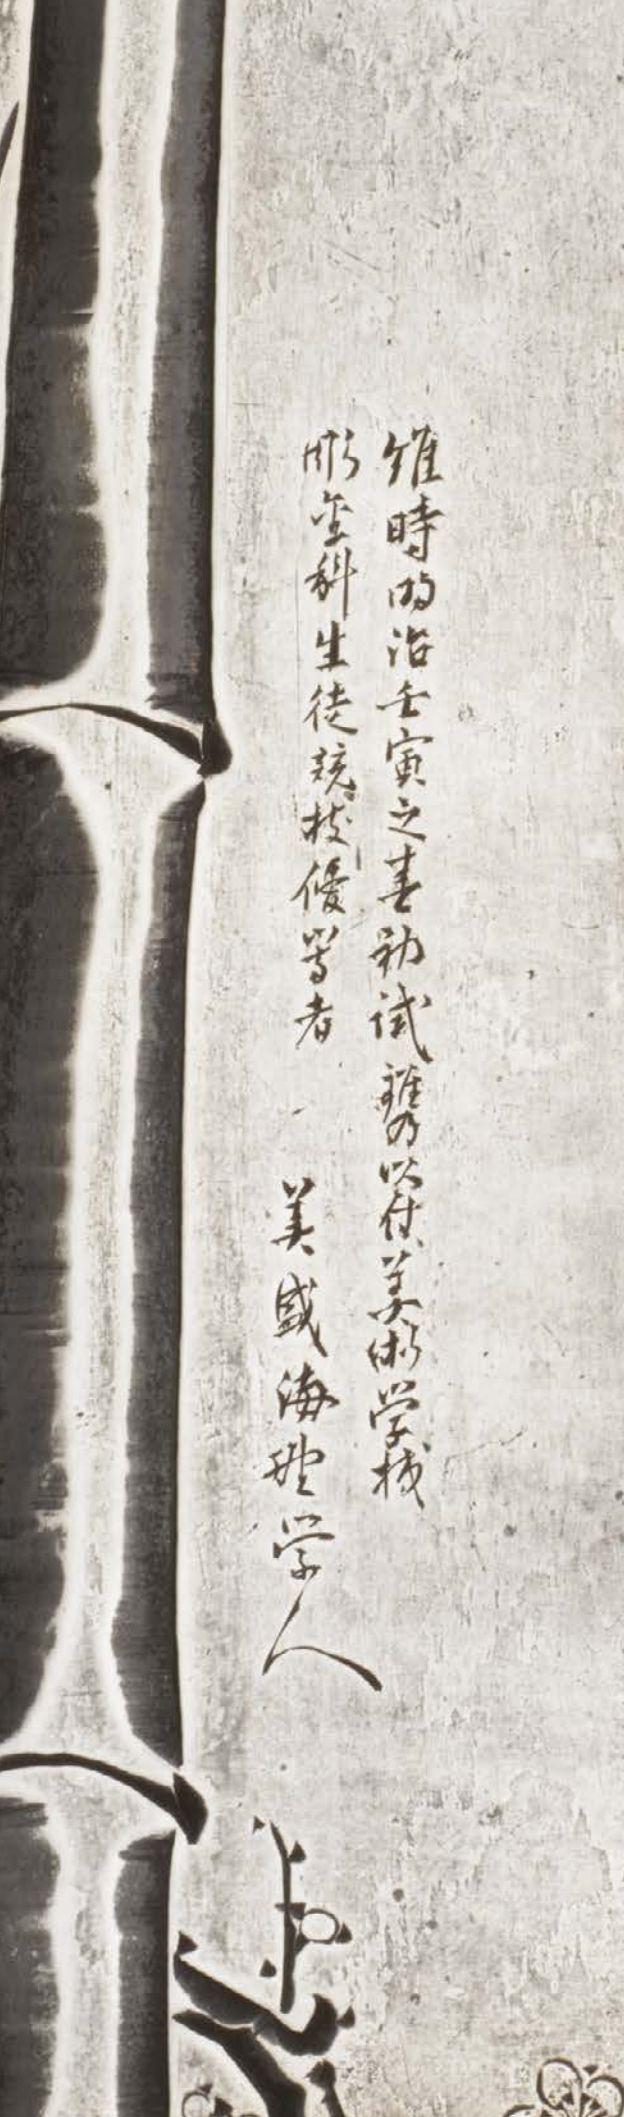 維時明治壬寅之春初試鐫乃以供美術学校
彫金科生徒競技優等者
美盛海野学人